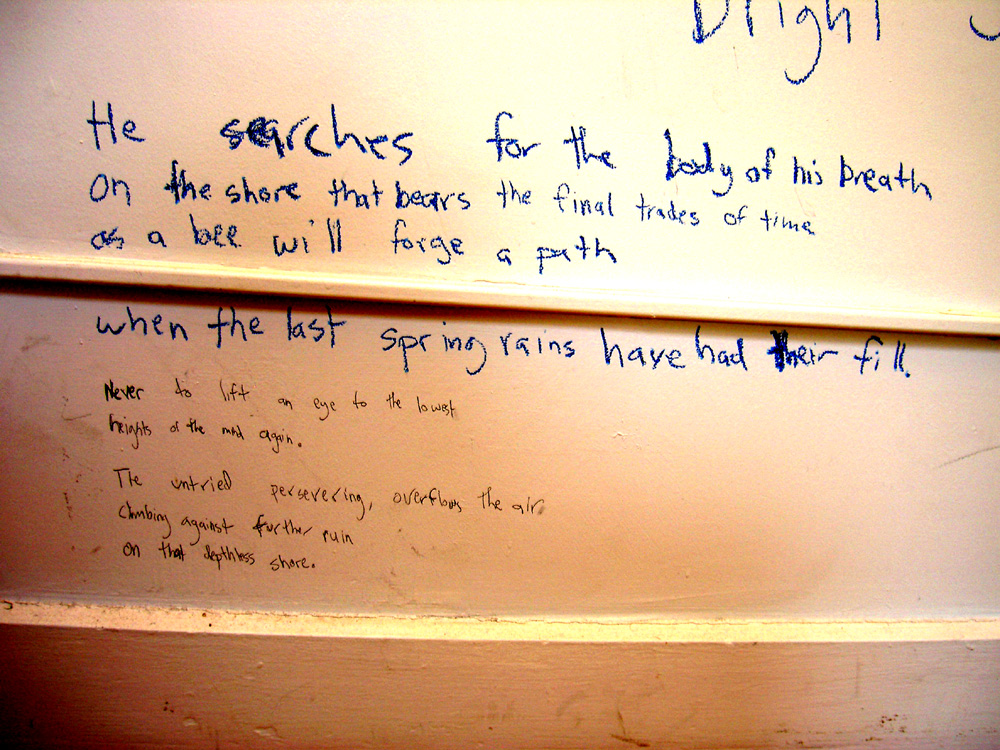 Bright
He searches for the body of his breath
on the shore that bears the final trades of time
as a bee will forge a path
when the last spring rains have had their fill.
Never to lift an eye to the lowest
heights of the mind again.
The untried persevering, overflows the air,
climbing against further ruin
on that depthless shore.